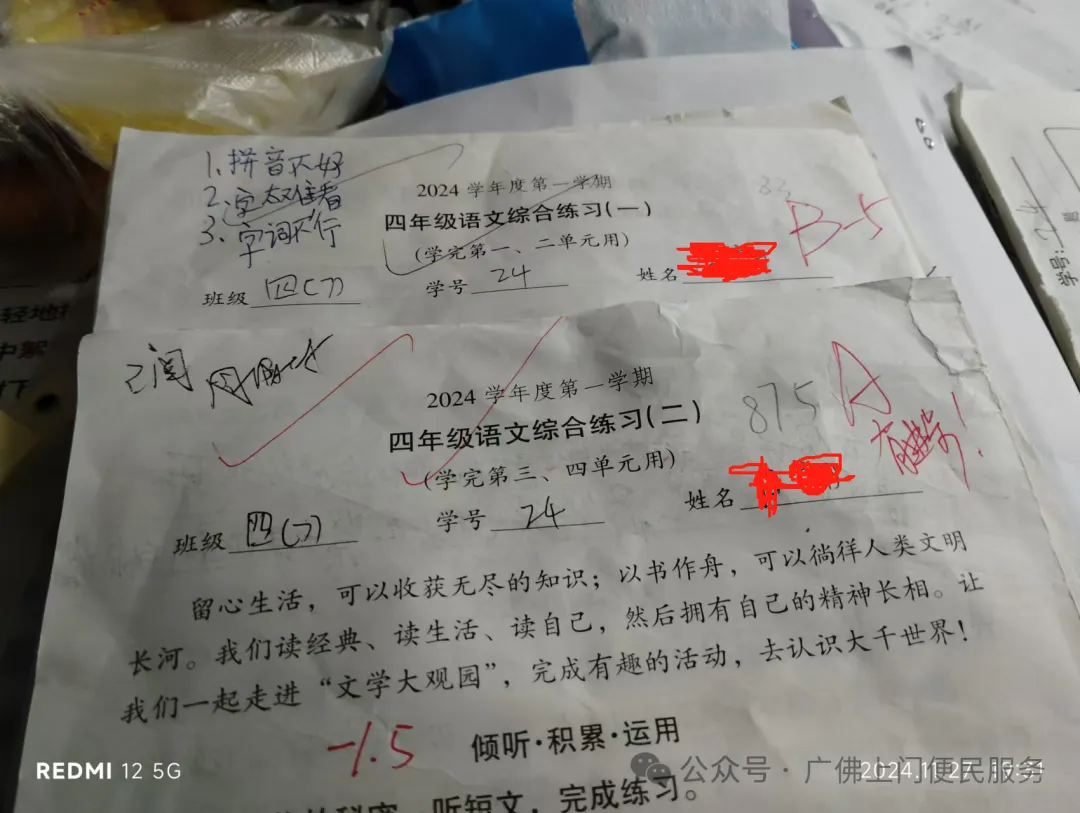 1.拼音不好
2.字太难看
3.字词不行
2024学年度第一学期
四年级语文综合练习(一)
(学完第一、二单元用)
83
B-5
班级 四(7) 学号 24 姓名
学号: 24
轻地
中絮
下
已阅
2024学年度第一学期
四年级语文综合练习(二)
(学完第三、四单元用)
875
A
有进步!
班级 四(7) 学号 24 姓名
留心生活，可以收获无尽的知识；以书作舟，可以徜徉人类文明
长河。我们读经典、读生活、读自己，然后拥有自己的精神长相。让
我们一起走进“文学大观园”，完成有趣的活动，去认识大千世界！
-1.5
倾听·积累·运用
听短文，完成练习。
REDMI 12 5G
公众号·广佛上门便民服务
2024.11.27